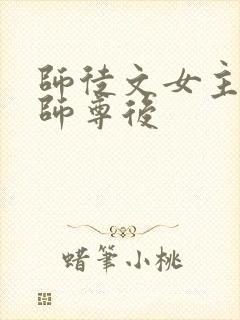 師徒文女主
師尊後
蜡筆小桃